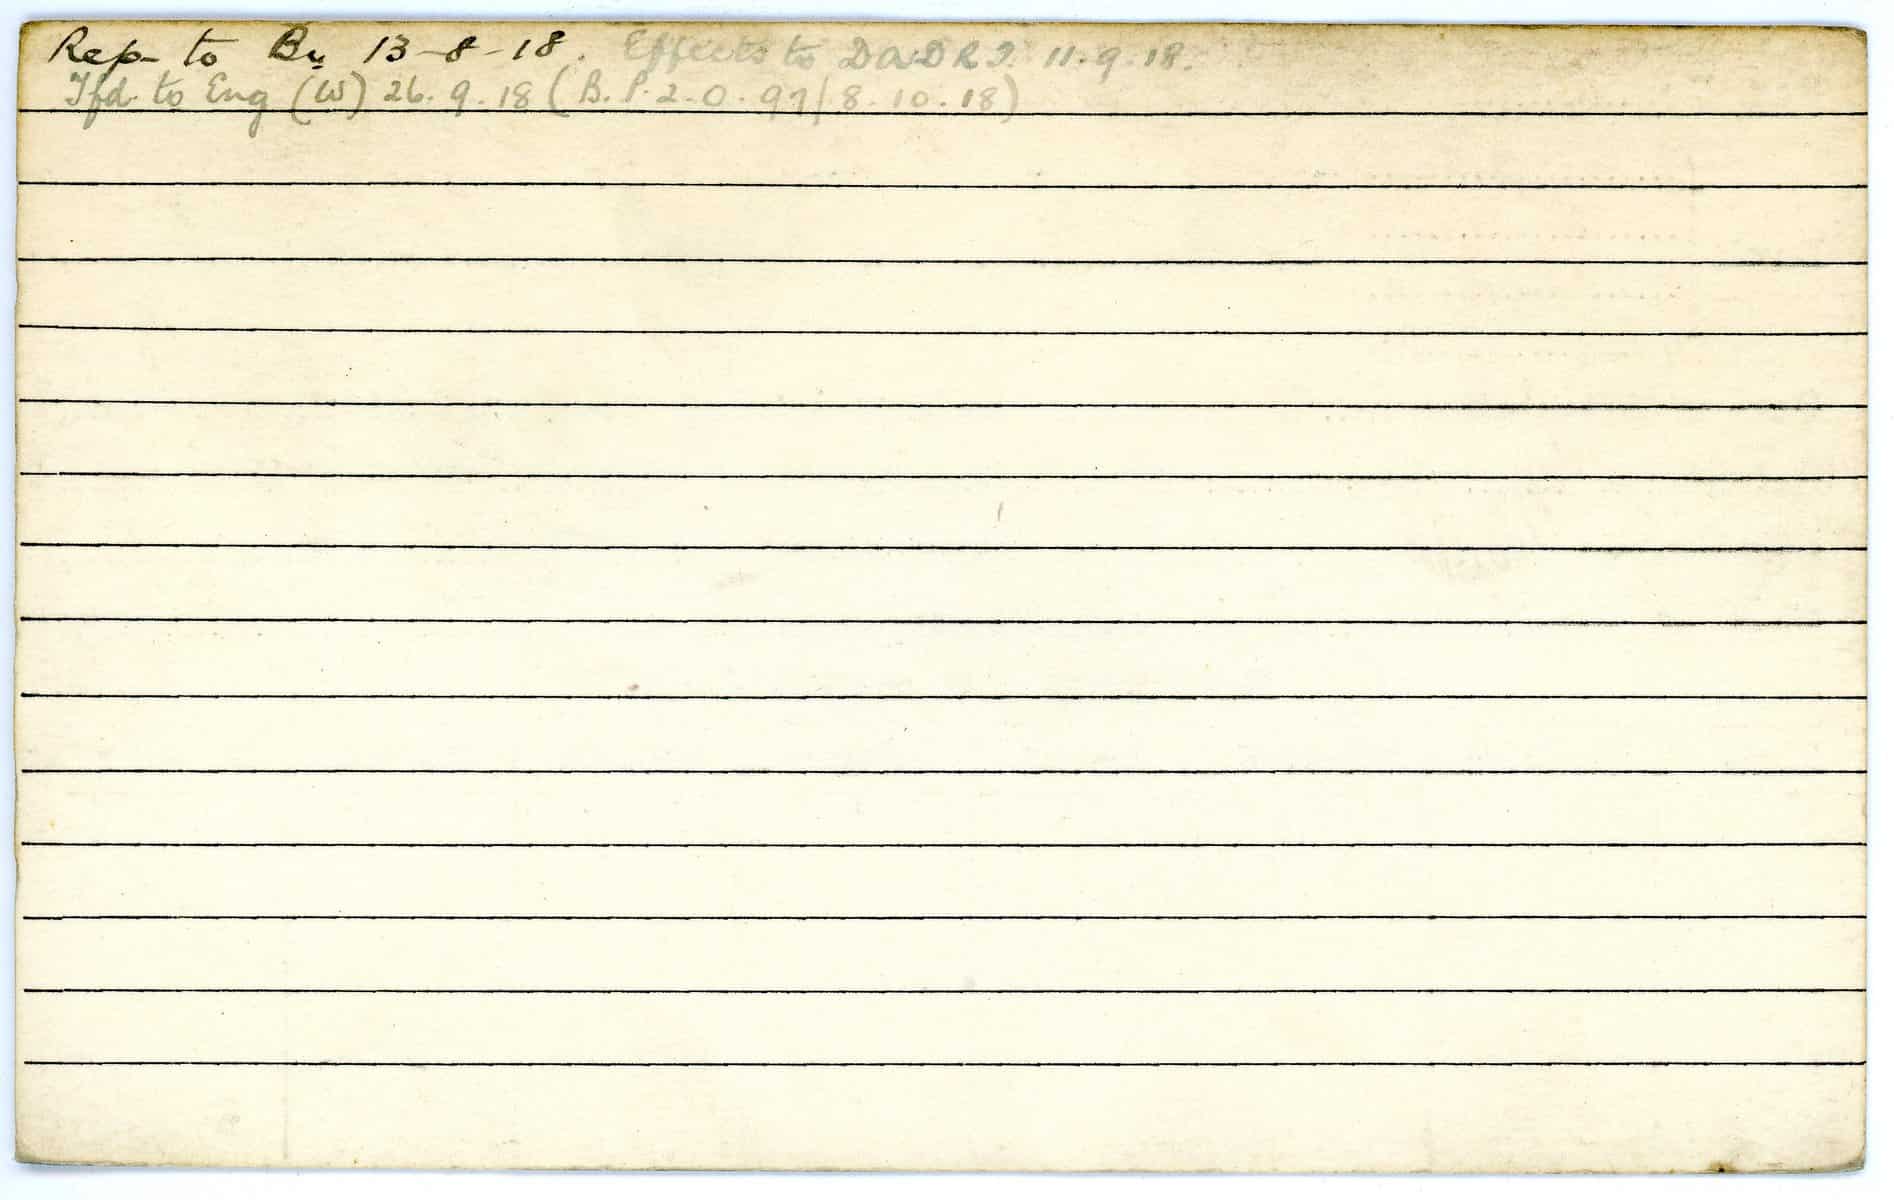 Rep- to Bn 13-8-18. Effects to DADRT. 11.9.18.
Tfd. to Eng (W) 26.9.18 (B.P.2.0.97/8.10.18)